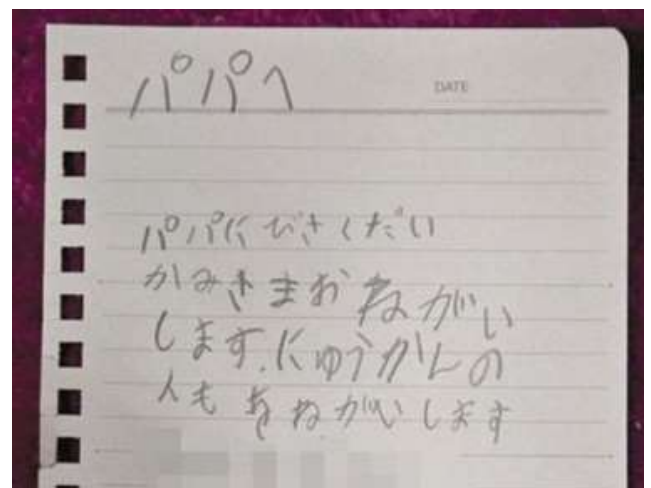 パパへ
DATE
パパにびさくだい
かみさまおねがい
します.にゅうかんの
人もおねがいします